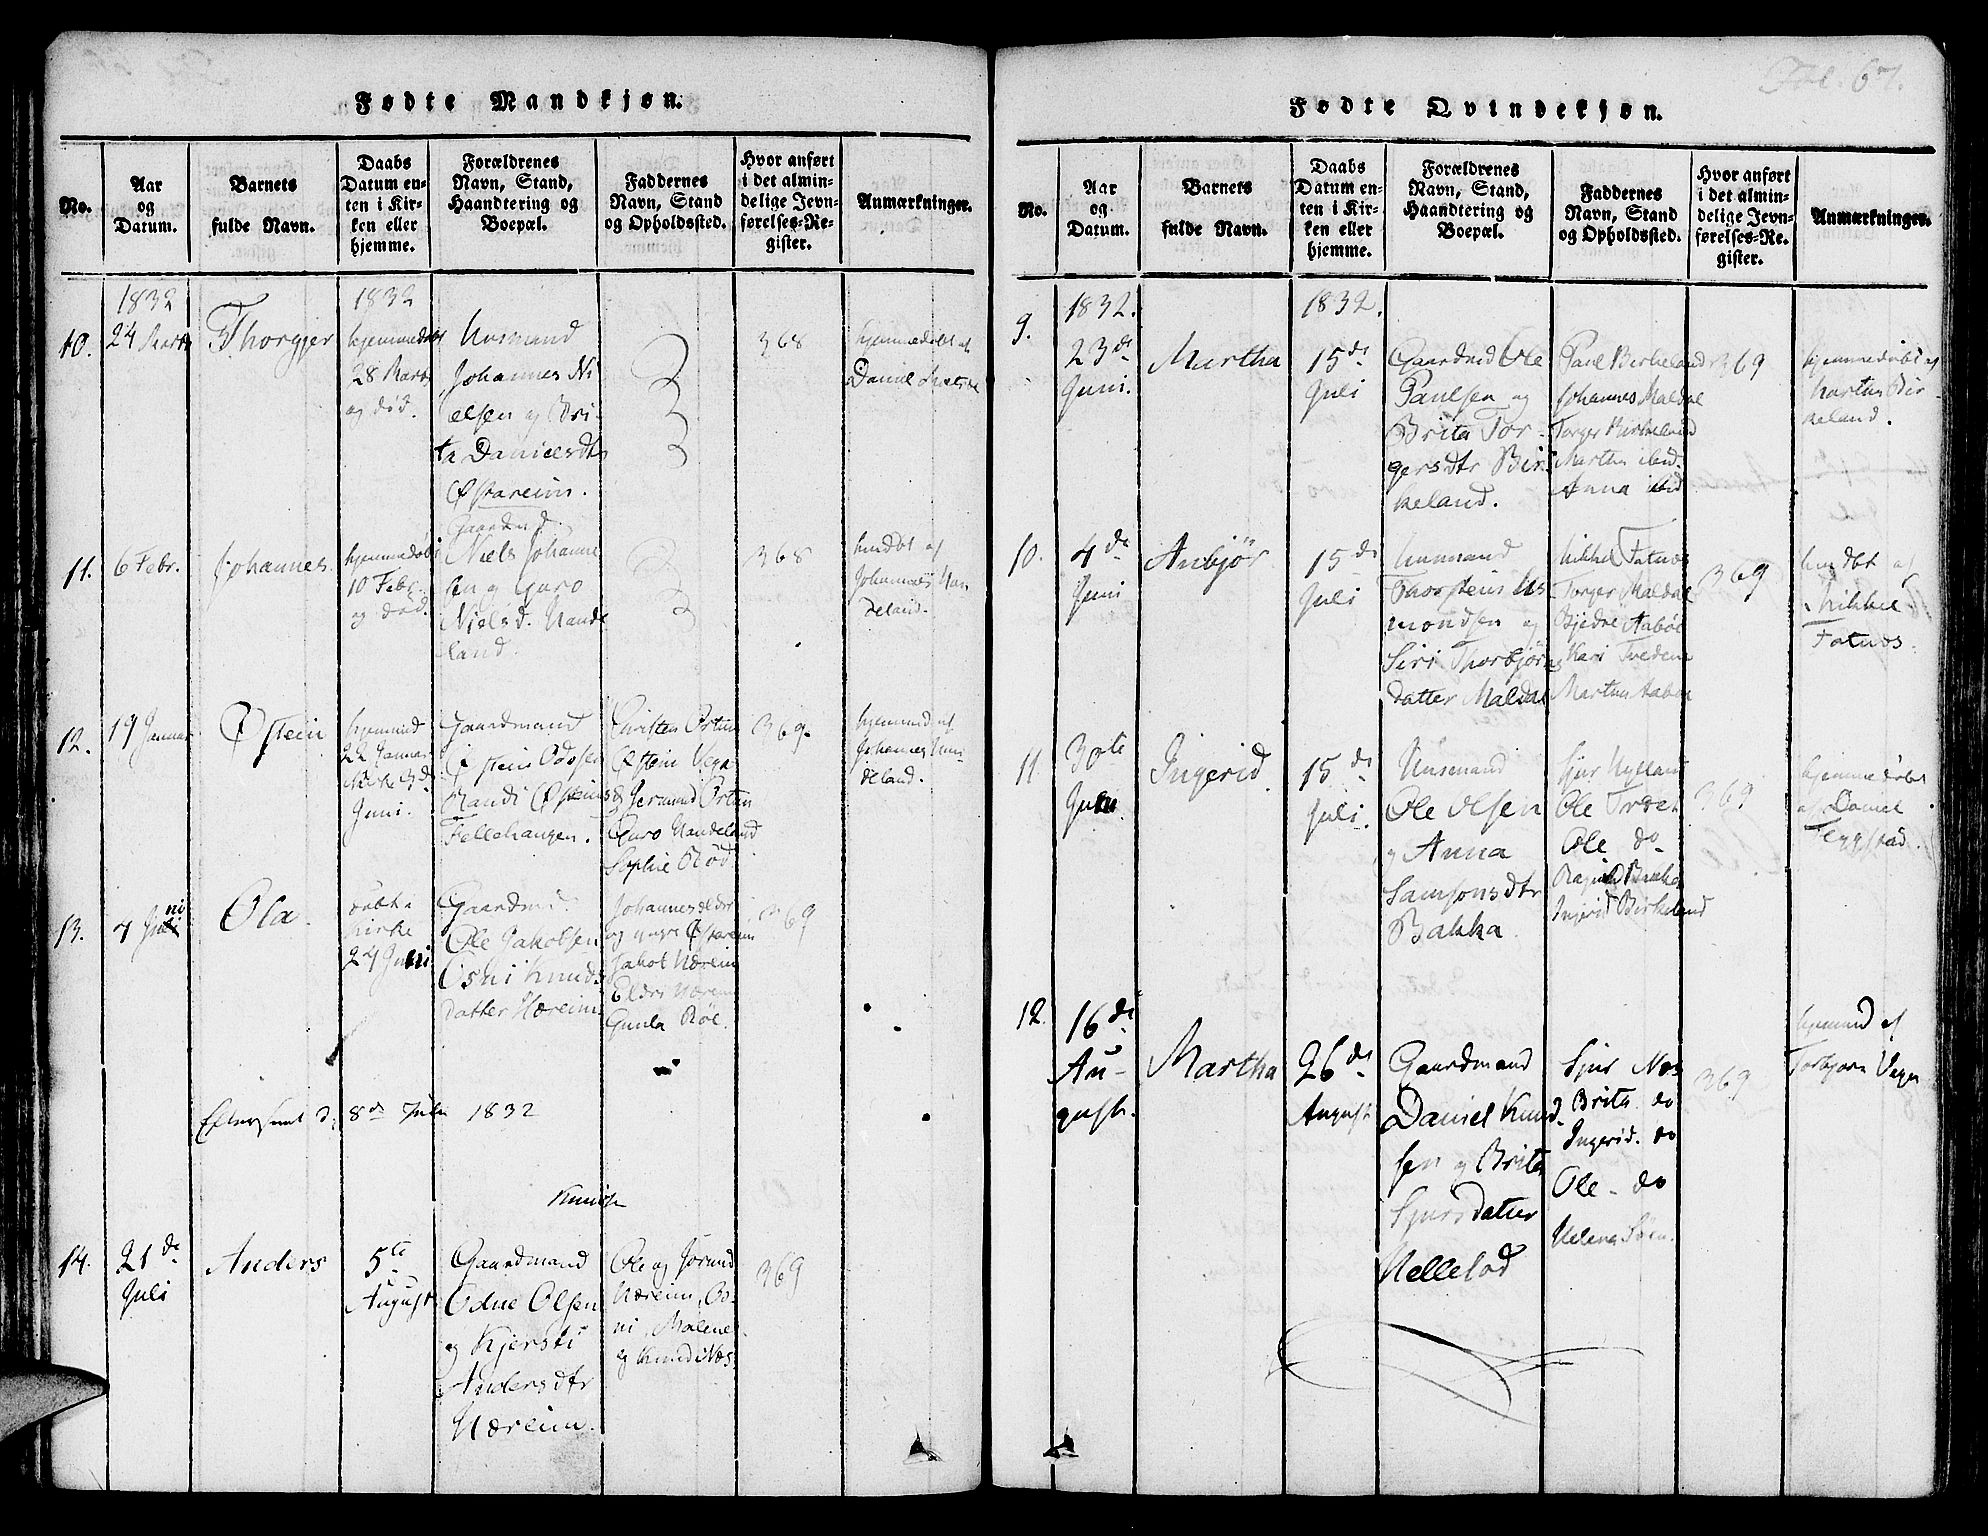 Fødte Mandkjøn.
No.
Aar
og
Datum.
Barnets
fulde Navn.
Daabs
Datum en-
ten i Kir-
ken eller
hjemme.
Forældrenes
Navn, Stand,
Haandtering og
Boepæl.
Faddernes
Navn, Stand
og Opholdssted.
Hvor anført
i det almin-
delige Jevn-
førelses-Re-
gister.
Anmærkninger.
10.
1832
24 Marts
Thorgjer
1832
hjemmedøbt
28 Marts
og død.
Husmand
Johannes Ni
elsen og Bri
ta Danielsdtr
Østareim.
368
hjemmedøbt af
Daniel
11.
6 Febr.
Johannes.
hjemmedøbt
10 Febr.
og død.
Gaardmd.
Niels Johanne
sen og Guro
Nielsd. Hande
land.
368
hmdbt af
Johannes Han
deland.
12.
19 Januar
Østein
hjemmed
22 Januar
Kirke 3d.
Juni.
Gaardmand
Østein Odvsen
Randi Østeinsd
Fellehaugen.
Christen Ørtun
Østein Vega
Jermund Ørtun
Guro Handeland
Sophie Röd
369.
hjemmed af
Johannes Han
deland.
13.
4 Juni
Ola.
døbt i
Kirke
24 Juni
Gaardmd.
Ole Jakobsen
Osni Knuds
datter Hæreim
Johannes ældre
og yngre Østareim
Jakob Hæreim
Eldri Hæreim
Gunla Röe.
369
Eftersent d. 8de Julii 1832
14.
21de
Juli
Anders
5te
August
Knudsen
Gaardmand
Odne Olsen
og Kjersti
Andersdtr
Hæreim.
Ole og Jorund
Hæreim, Go-
ni, Malene
og Knud Næs
369
Fol. 67.
Fødte Qvindekjøn.
No.
Aar
og
Datum.
Barnets
fulde Navn.
Daabs
Datum en-
ten i Kir-
ken eller
hjemme.
Forældrenes
Navn, Stand,
Haandtering og
Boepæl.
Faddernes
Navn, Stand
og Opholdssted.
Hvor anført
i det almin-
delige Jevn-
førelses-Re.
gister.
Anmærkninger.
9.
1832.
23de
Juni.
Martha
1832.
15de
Juli
Gaardmd Ole
Paulsen og
Brita Tor-
gersdtr Bir
keland.
Paul Birkeland
Johannes Maldal
Torger Birkeland
Martha ibid.
Anna ibid
369
hjemmedøbt af
Martha Bir
keland.
10.
4de
Juni
Anbjör
15de
Juli
Husmand
Thorstein As
mondsen og
Siri Thorbjörns
datter Maldal
Mikkel Fatnæs
Torger Maldal
Bjedne Aaböe
Kari Tvedena
Martha Aaböe
369
hmdbt af
Mikkel
Fatnæs.
11.
30te
Juni
Ingerid
15de
Juli.
Husmand
Ole Olsen
og Anna
Samsonsdtr
Bakka
Sjur Hylland
Ole Træet
Ole do
Bakka
Ingerid Birkeland
369
hjemmedøbt
af Daniel
12.
16de
Au-
gust.
Martha
26de
August
Gaardmand
Daniel Knud-
sen og Brita
Sjursdatter
Hellelad
Sjur Næs
Brita do
Ingerid do
Ole do
Helena Sörn.
369
hjemmed af
Torbjörn Vega